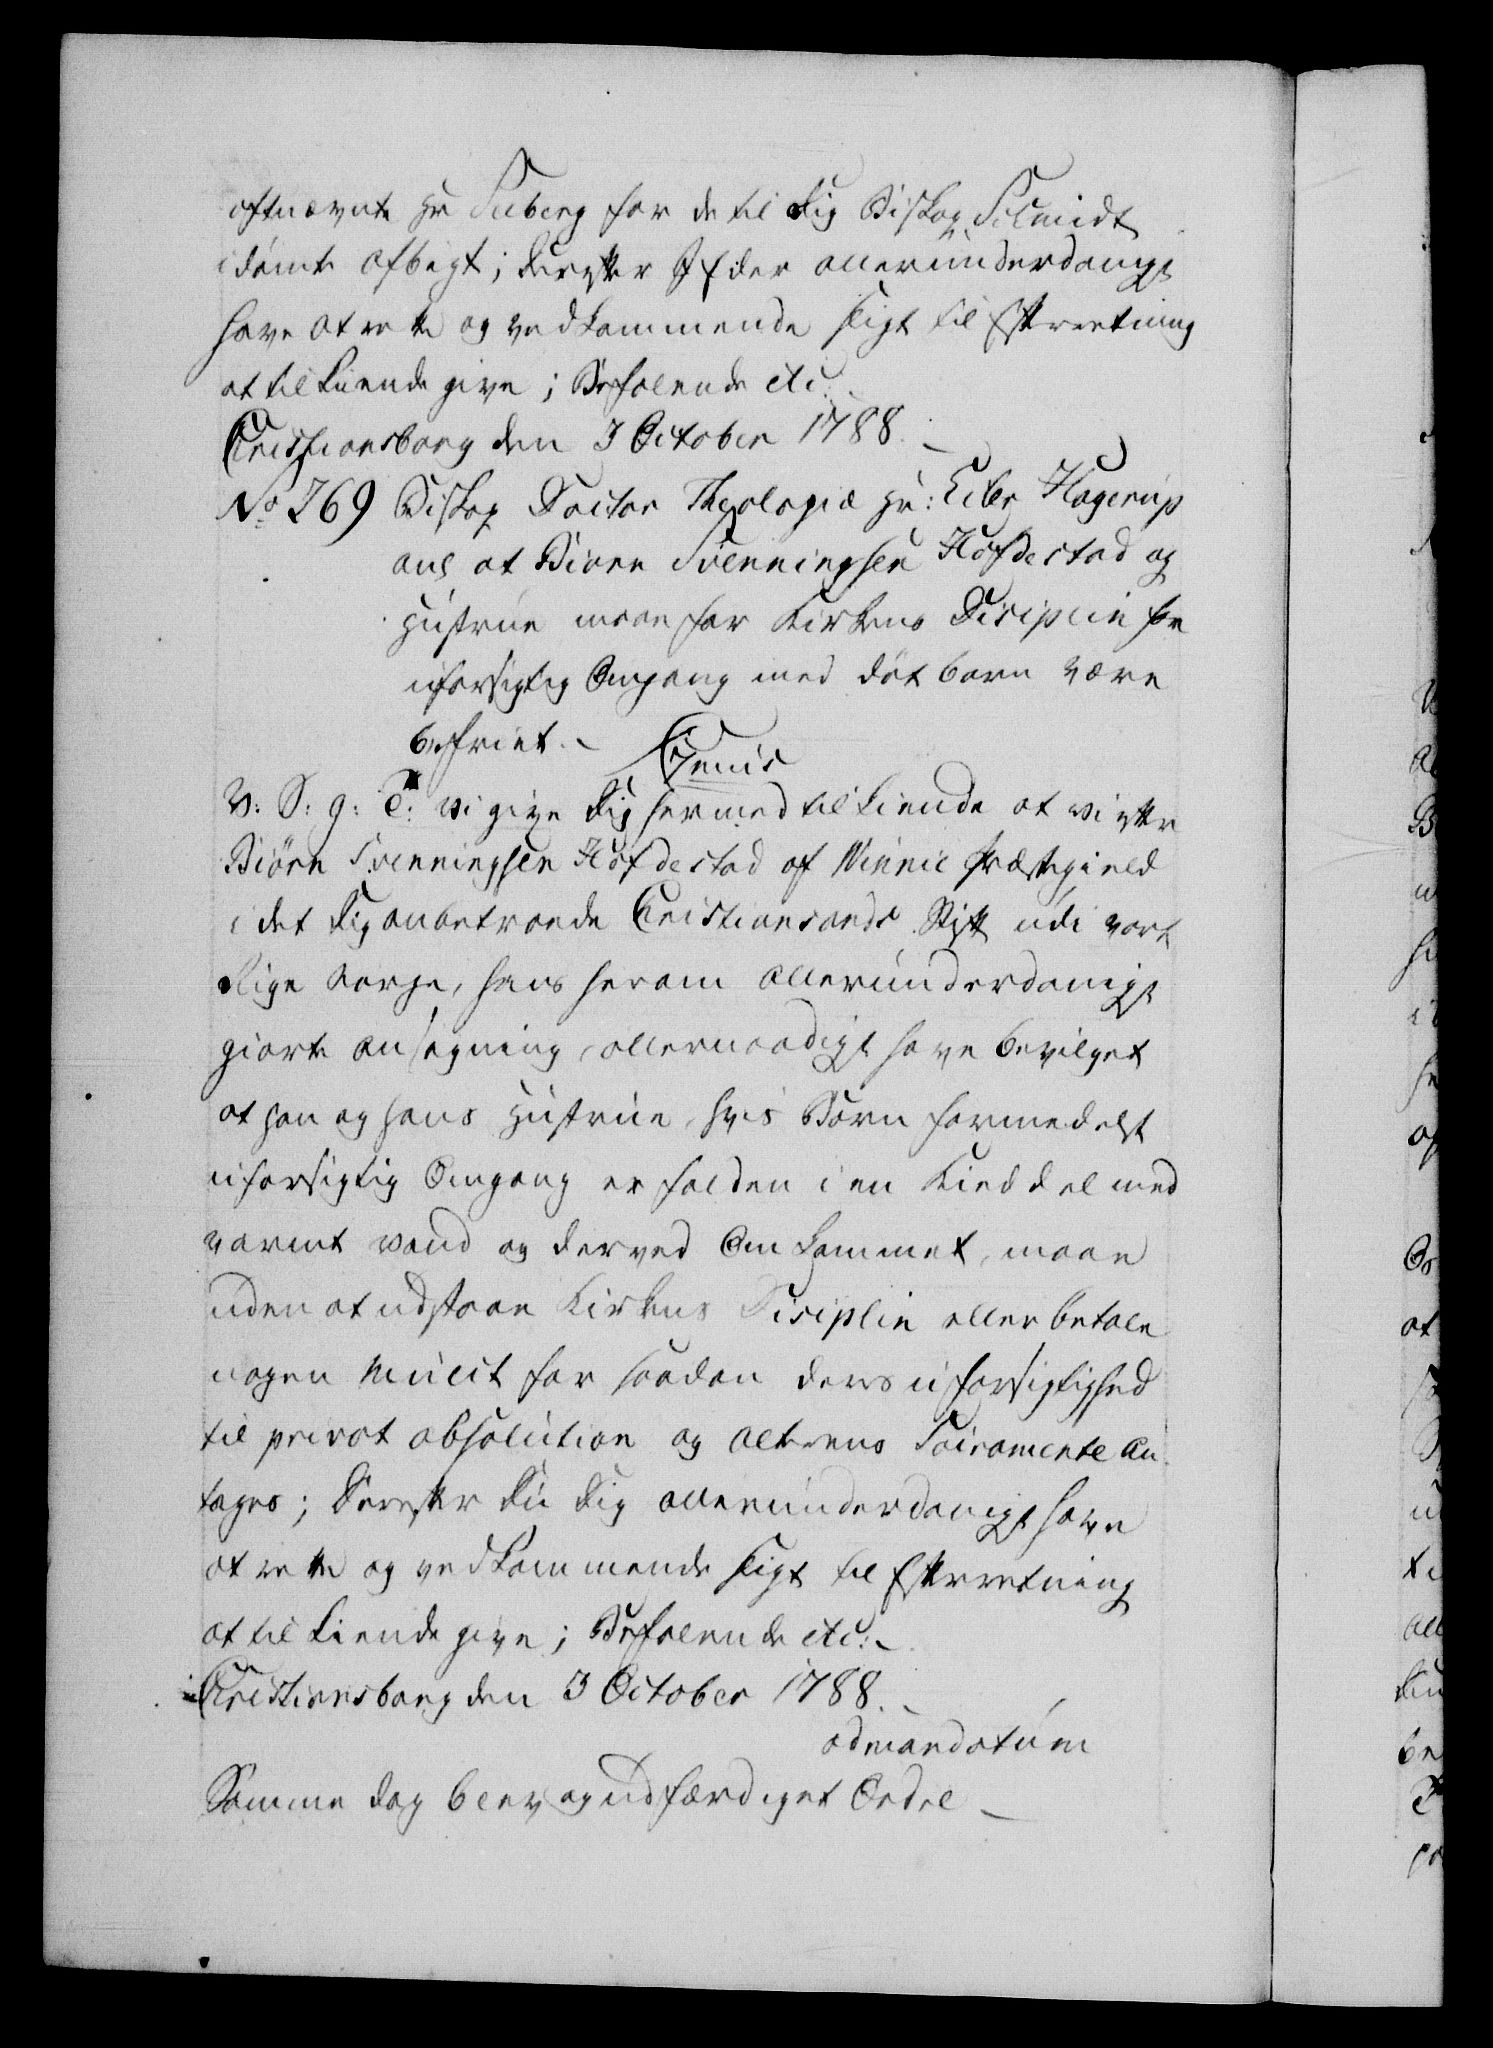 oftnævnte Hr Seeberg for de til Dig Biskop Schmidt
idömte Afbigt; Derefter I Eder allerunderdanigst
have at rette og vedkommende sligt til Efterretning
at tilkiende give; Befalende etc:
Christiansborg den 3 October 1788.
No 769 Biskop Doctor Theologiæ Hr: Eiler Hagerup
anl at Biörn Svenningsen Höfdestad og
Hustrue maae for Kirkens Disiplin for
uforsigtig Omgang med döt barn være
befriet. –
Genis
V: S: g: T: Vi give Dig hermed tilkiende at vi efter
Biörn Svenningsen Höfdestad af Vinnie Præstegield
i det Dig anbetroede Christiansands Stift udi vort
Rige Norge, hans herom allerunderdanigst
giorte Ansögning, allernaadigst have bevilget
at han og hans Hustrue, hvis Barn formedelst
uforsigtig Omgang er falden i en Kieddel med
varmt vand og derved Omkommet, maae
uden at udstaae Kirkens Disiplin eller betale
nogen Mulct for saadan deres uforsigtighed
til privat absolution og Alterens Sacramente an-
tages; Derefter Du Dig allerunderdanigst have
at rette og vedkommende sligt til Efterretning
at tilkiende give; Befalende etc: –
Christiansborg den 3 October 1788.
ad mandatum
Samme dag blev og udfærdiget Ordre –